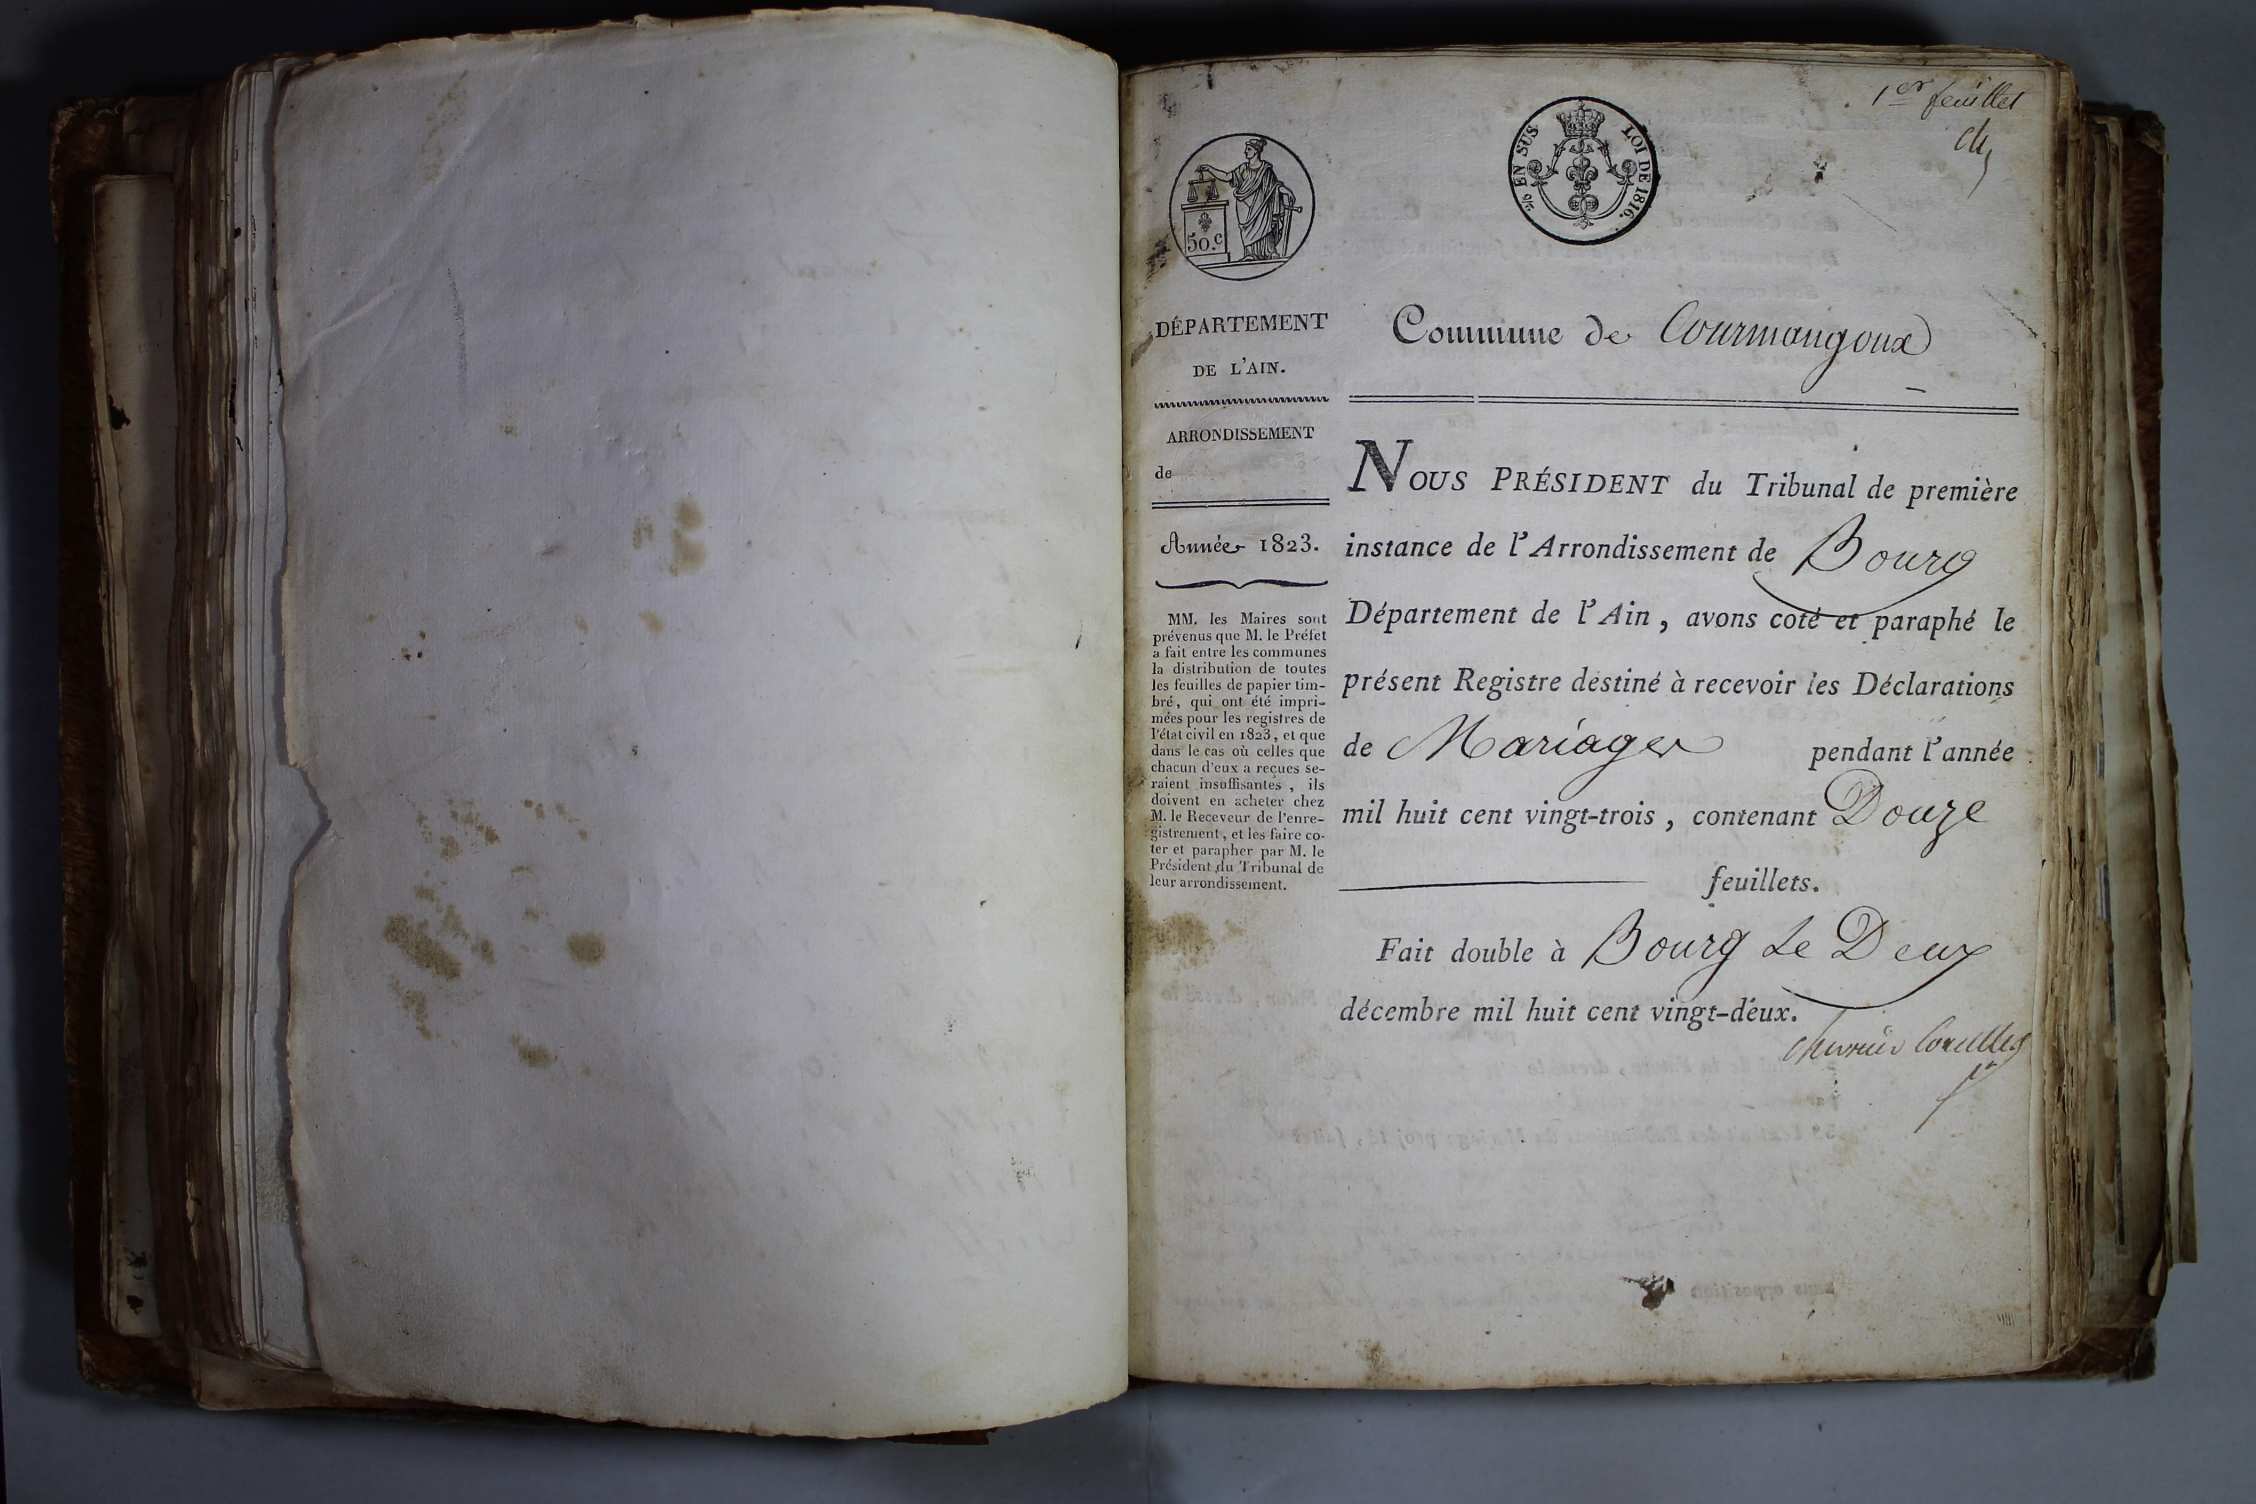 1er feuillet
EN SUS
LOI DE 1816.
50.c
DÉPARTEMENT
DE L'AIN.
ARRONDISSEMENT
de
Année 1823.
MM. les Maires sont
prévenus que M. le Préfet
a fait entre les communes
la distribution de toutes
les feuilles de papier tim-
bré, qui ont été impri-
mées pour les registres de
l'état civil en 1823, et que
dans le cas où celles que
chacun d'eux a reçues se-
raient insuffisantes, ils
doivent en acheter chez
M. le Receveur de l'enre-
gistrement, et les faire co-
ter et parapher par M. le
Président du Tribunal de
leur arrondissement.
Commune de Courmangoux
NOUS PRÉSIDENT du Tribunal de première
instance de l'Arrondissement de Bourg
Département de l'Ain, avons coté et paraphé le
présent Registre destiné à recevoir les Déclarations
de Mariages pendant l'année
mil huit cent vingt-trois, contenant Douze
feuillets.
Fait double à Bourg Le Deux
décembre mil huit cent vingt-deux.